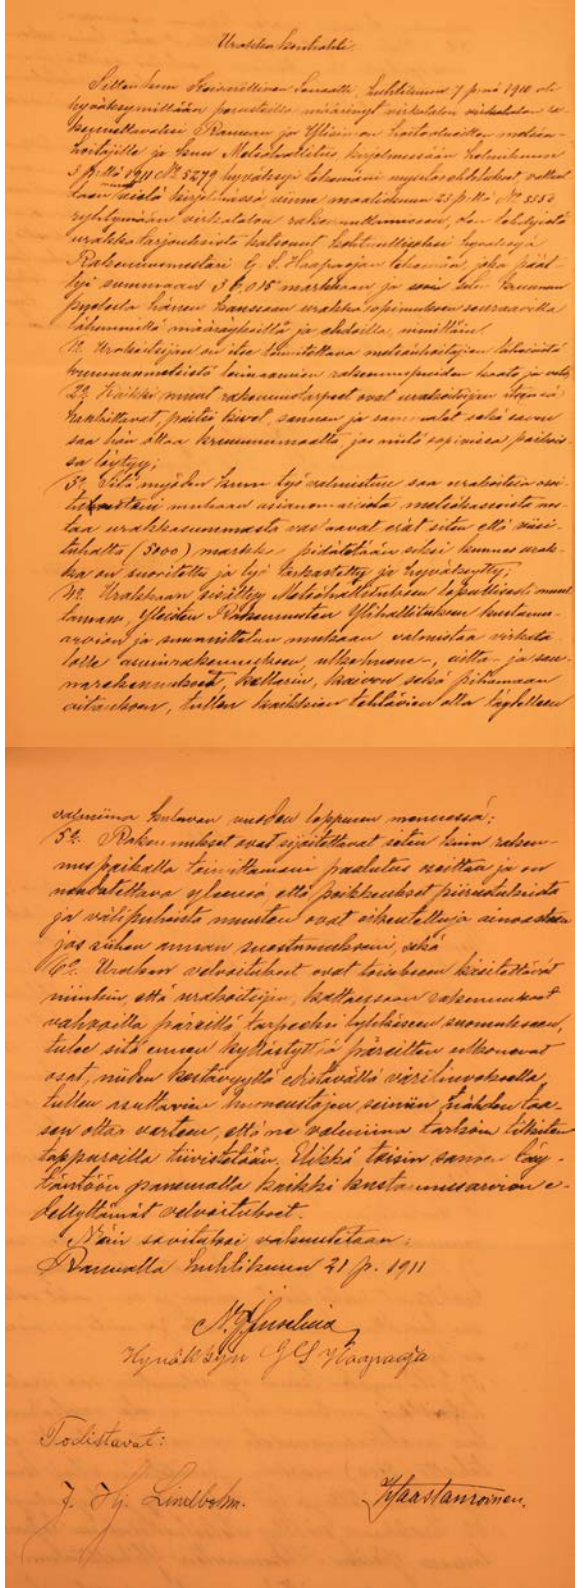 Urakka kontrahti.
Sittenkun Keisarillinen Senaatti, huhtikuun 7 p:nä 1910 oli
hyväksymillään perusteilla määrännyt virkatalon ra-
kennettavaksi Ranuan ja Ylisimon hoitoalueitten metsän-
hoitajille ja kun Metsähallitus kirjelmässään helmikuun
3 p:ltä 1911 No 5279 hyväksyi tekemäni myyntiehdotukset
kirjelmässä viime maaliskuun 23 p:ltä No 5550
ryhtymään virkatalon rakennuttamiseen, olen tehdyistä
urakkatarjouksista katsonut kohtuulliseksi hyväksyä
Rakennusmestari G. S. Haapaojan tekemän, joka päät-
tyi summaan 36,015 markkaan ja sen kruunun
puolesta hänen kanssaan urakkasopimuksen seuraavilla
lähemmillä määräyksillä ja ehdoilla, nimittäin:
1o. Urakoitsijan on itse toimitettava metsänhoitajien läheisistä
kruununmetsistä leimaamien rakennuspuiden haato ja veto,
2o. Kaikki muut rakennustarpeet ovat urakoitsijan itsensä
hankittavat, paitsi kivet, sannan ja sammalet sekä saven
saa hän ottaa kruununmaalta jos niitä sopivissa paikois-
sa löytyy;
3o. Sitä myöden kuin työ valmistuu saa urakoitsija osoi-
tukseni mukaan asianomaisista metsäkassoista nos-
taa urakkasummasta vastaavat erät siten että viisi-
tuhatta (5000) markkaa pidätetään siksi kunnes urak-
ka on suoritettu ja työ tarkastettu ja hyväksytty;
4o. Urakkaan sisältyy Metsähallituksen lopullisesti muut-
taman, Yleisten Rakennusten Ylihallituksen kustannus-
arvion ja suunnittelun mukaan valmistaa virkata-
lolle asuinrakennuksen, ulkohuone-, aitta- ja sau-
narakennukset, kellarin, kaivon sekä pihamaan
aitauksen, tullen kaikkien tehtävien olla täydelleen
valmiina kuluvan vuoden loppuun mennessä;
5o. Rakennukset ovat sijoitettavat siten kuin raken-
nuspaikalla toimittamani paalutus osoittaa ja on
noudatettava yleensä että poikkeukset piirustuksista
ja välipuheista muuten ovat oikeutettuja ainoastaan
jos siihen annan suostumukseni, sekä
6o. Urakan velvoitukset ovat toisekseen käsitettävät
niinkuin, että urakoitsijan, kattaessaan rakennukset
vahvoilla päreillä tarpeeksi tyhkäseen suomukseen,
tulee sitä ennen kyllästyttää päreitten ulkonevat
osat, niiden kestävyyttä edistävällä väriliuoksella
tullen asuttavien huoneustojen seiniin nähden taa-
sen ottaa varteen, että ne valmiina tarkoin tilkitän
tappuroilla tiivistetään. Elikkä toisin sanoen käy-
täntöön panemalla kaikki kustannusarvion e-
dellyttämät velvoitukset.
Näin sovituksi vakuutetaan;
Ranualla huhtikuun 21 p. 1911
Hyväksyn G S Haapaoja
Todistavat:
J. Hj. Lindholm.